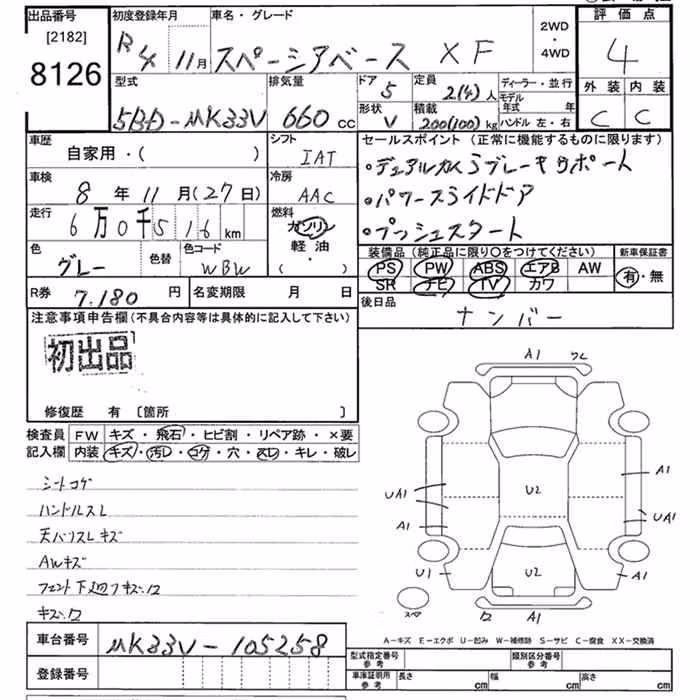 出品番号
[2182]
8126
初度登録年月
R4 11月
車名・グレード
スペーシアベース XF
2WD
・
4WD
評価点
4
外装 内装
C C
型式
5BD-MK33V
排気量
660 cc
ドア
5
形状
V
定員
2(4)人
積載
200(100)kg
ディーラー・並行
モデル年式 年
ハンドル 左・右
車歴
自家用・( )
車検
8年11月(27日)
走行
6万0千516km
色
グレー
色替
色コード
WBW
シフト
IAT
冷房
AAC
燃料
ガソリン
軽油
( ・ )
セールスポイント (正常に機能するものに限ります)
・デュアルカメラブレーキサポート
・パワースライドドア
・プッシュスタート
装備品 (純正品に限り〇をつけてください)
PS PW ABS エアB AW
SR ナビ TV カワ
新車保証書
有・無
R券
7.180 円
名変期限 月 日
後日品
ナンバー
注意事項申告欄(不具合内容等は具体的に記入して下さい)
初出品
修復歴 有 [箇所 ]
検査員
記入欄
FW キズ・飛石・ヒビ割・リペア跡・×要
内装 キズ・汚レ・コゲ・穴・スレ・キレ・破レ
シートコゲ
ハンドルスレ
天バリスレキズ
AWキズ
キズ
A1
A1
UA1
U2
A1
UA1
U1
U2
A1
スペア
A1
A-キズ E-エクボ U-凹み W-補修跡 S-サビ C-腐食 XX-交換済
車台番号
MK33V-105258
登録番号
型式指定番号
参考
類別区分番号
参考
車庫証明用
参考
長さ cm 幅 cm 高さ cm